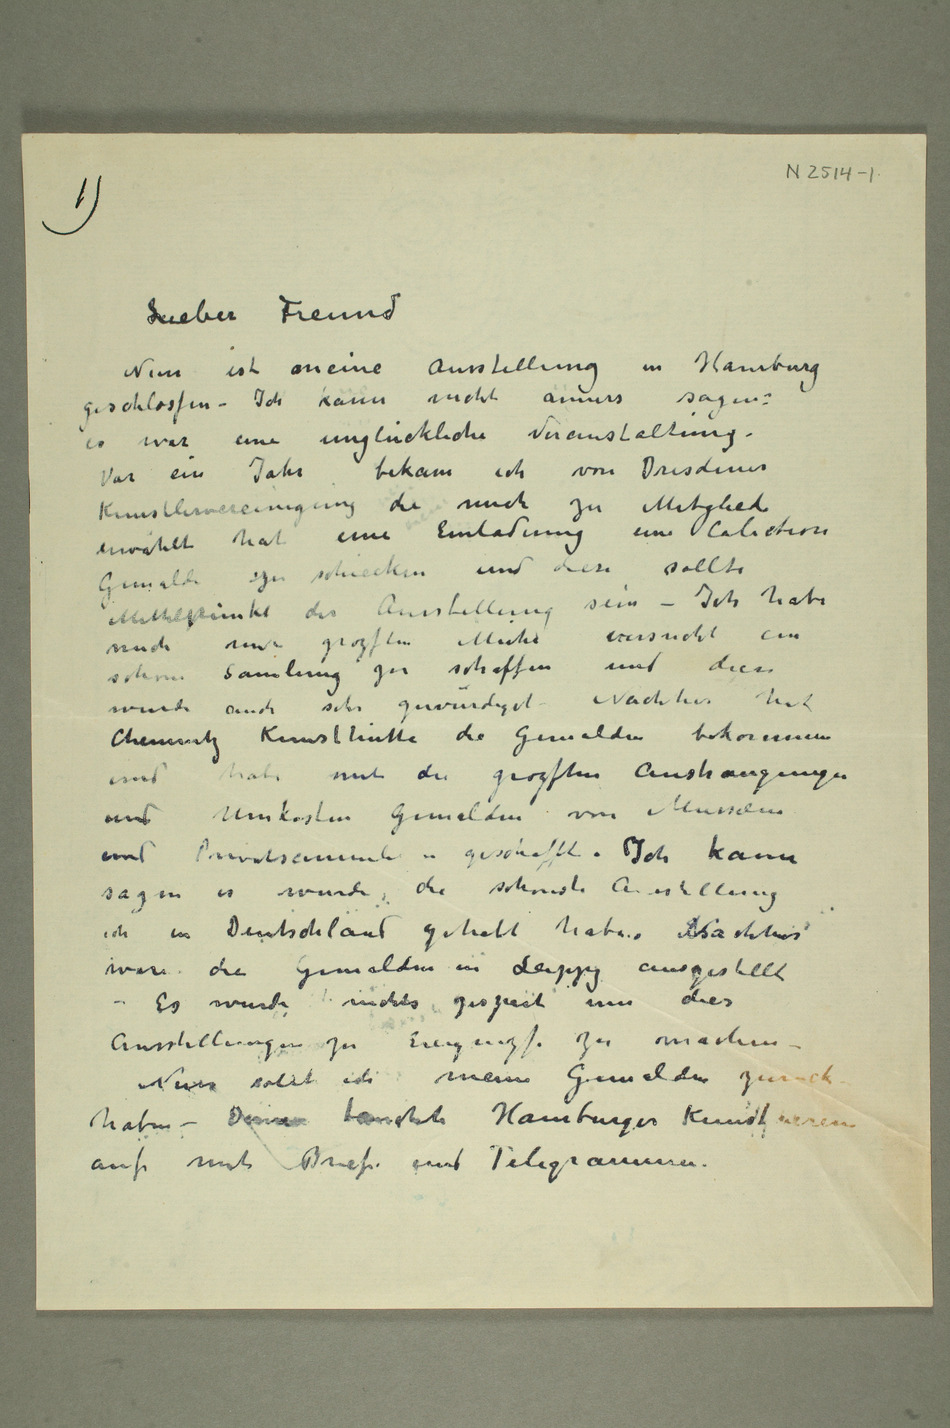 N 2514-1.
1)
Lieber Freund
Nun ist meine Ausstellung in Hamburg
geschlossen – Ich kann nicht anners sagen:
es war eine unglückliche Veranstaltung.
Vor ein Jahr bekam ich von Dresdener
Kunstlervereinigung die mich zu Mitglied
erwählt hat eine Einladung eine Colection
Gemälde zu schiecken und diese sollte
Mittelpunkt der Ausstellung sein – Ich habe
mich mit großten Mühe versucht ein
schöne Samlung zu schaffen und diese
wurde auch sehr gewürdigt – Nachher hat
Chemnitz Kunsthütte die Gemälden bekommen
und hat mit die großten Anstrangungen
und Unkosten Gemälden von Museen
und Privatsammler geschafft. Ich kann
sagen es wurde die schönste Ausstellung
ich in Deutschland gehabt habe. Nachher
ware die Gemälden in Leipzig ausgestellt
– Es wurde nichts gespart um dies
Ausstellungen zu Ereignisse zu machen –
Nun sollt ich meine Gemälden zurück
haben – tauchte Hamburger Kunstverein
auf mit Briefe und Telegrammen.